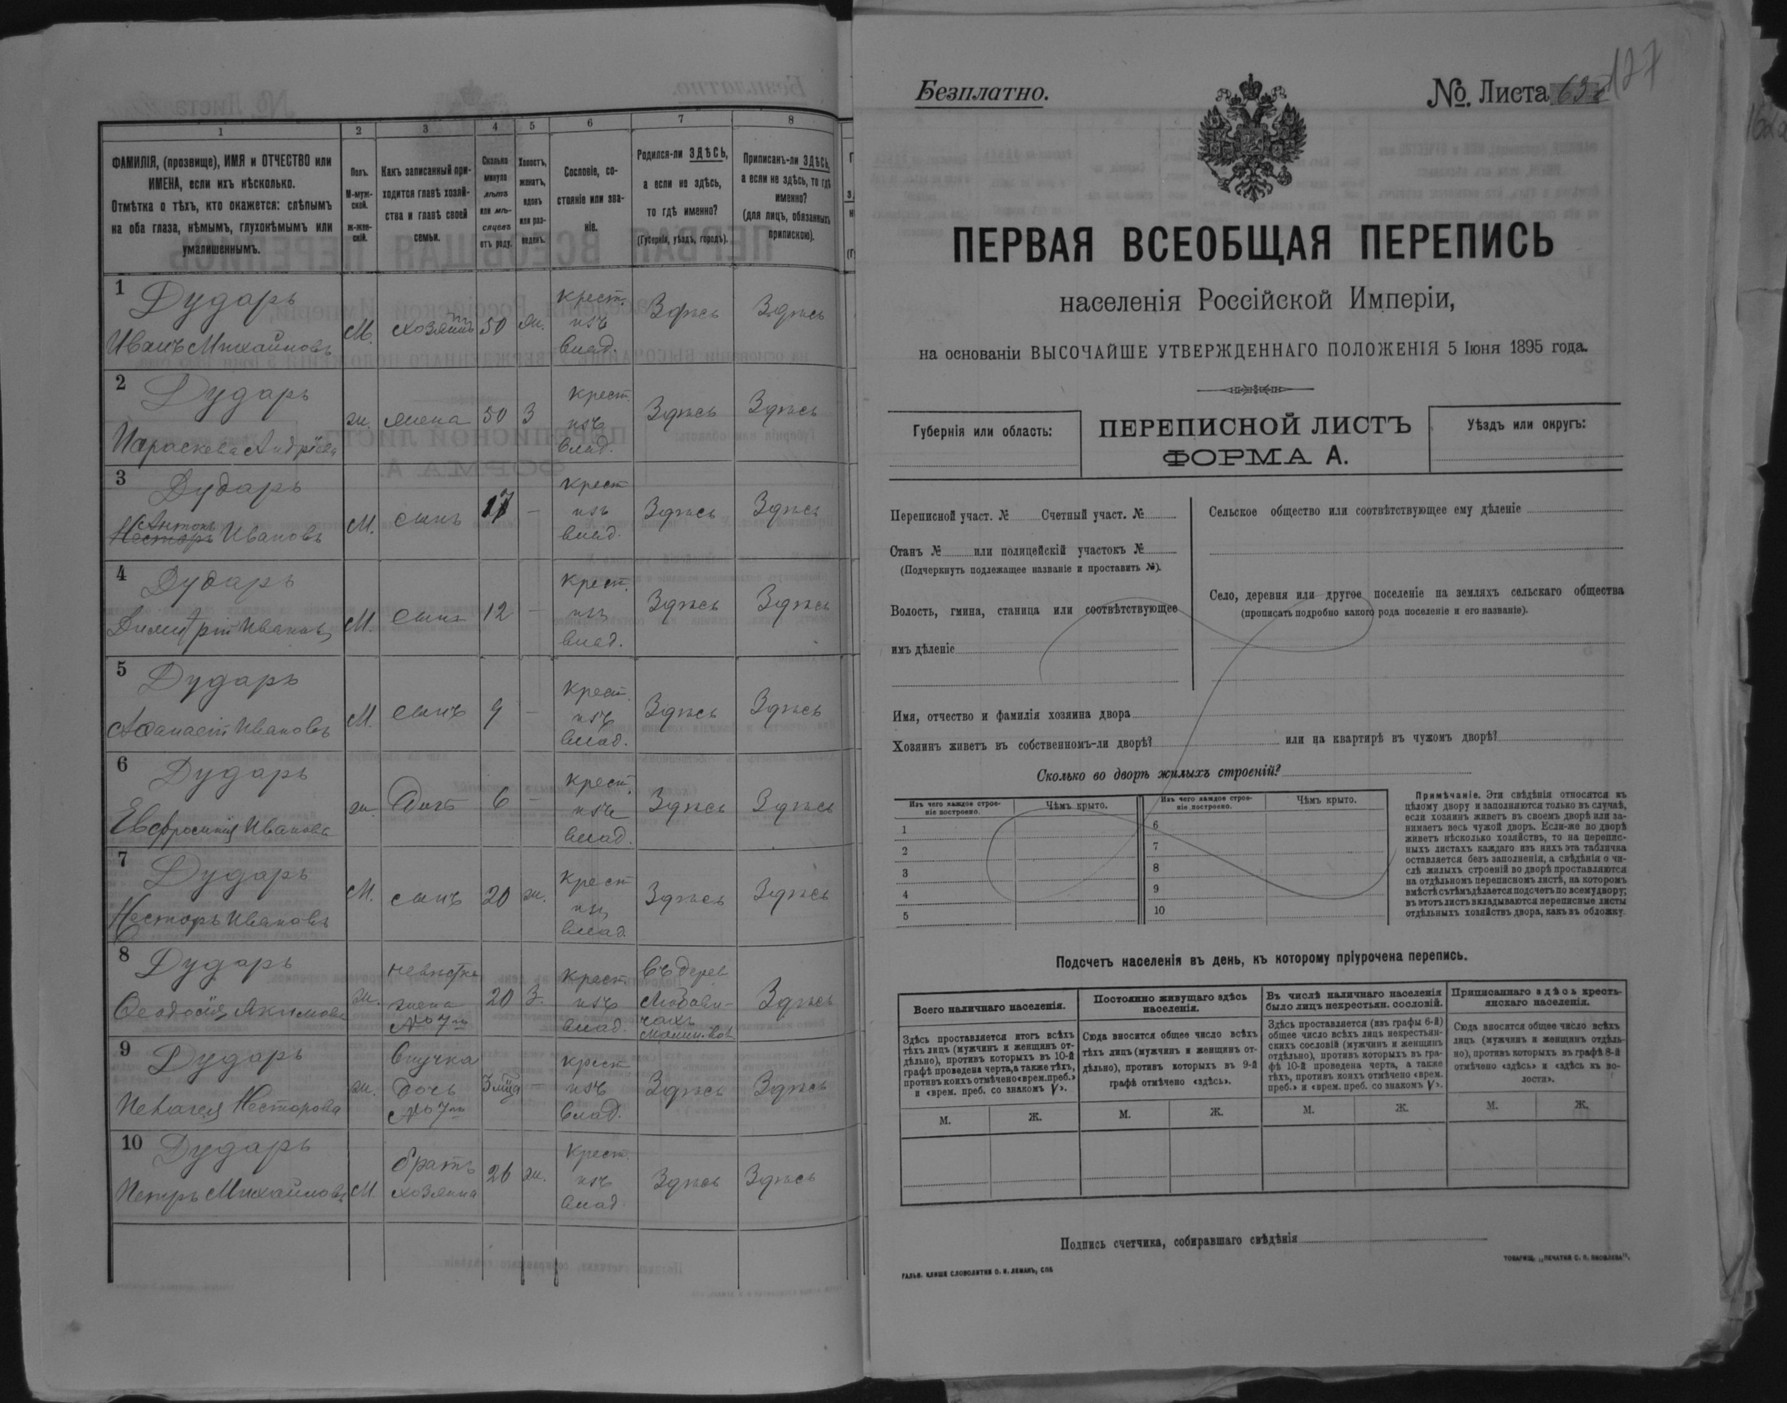 1
2
3
4
5
6
7
8
ФАМИЛІЯ, (прозвище), ИМЯ и ОТЧЕСТВО или
ИМЕНА, если ихъ нѣсколько.
Отмѣтка о тѣхъ, кто окажется: слѣпымъ
на оба глаза, нѣмымъ, глухонѣмымъ или
умалишеннымъ.
Полъ.
М-муж-
ской.
ж-жен-
скій.
Какъ записанный при-
ходится главѣ хозяй-
ства и главѣ своей
семьи.
Сколько
минуло
лѣтъ
или мѣ-
сяцевъ
отъ роду.
Холостъ,
женатъ,
вдовъ
или раз-
веденъ.
Сословіе, со-
стояніе или зва-
ніе.
Родился-ли ЗДѢСЬ,
а если не здѣсь,
то гдѣ именно?
(Губернія, уѣздъ, городъ).
Приписанъ-ли ЗДѢСЬ,
а если не здѣсь, то гдѣ
именно?
(для лицъ, обязанныхъ
припискою).
1
Дударь
Иванъ Михайловъ
М.
хозяинъ
50
ж.
крест.
изъ
влад.
Здѣсь
Здѣсь
2
Дударь
Параскева Андрѣева
ж.
жена
50
З
крест.
изъ
влад.
Здѣсь
Здѣсь
3
Дударь
Антонъ
Несторъ Ивановъ
М.
сынъ
17
-
крест
изъ
влад.
Здѣсь
Здѣсь
4
Дударь
Димитрій Ивановъ
М.
сынъ
12
-
крест.
изъ
влад.
Здѣсь
Здѣсь
5
Дударь
Афанасій Ивановъ
М.
сынъ
9
-
крест.
изъ
влад.
Здѣсь
Здѣсь
6
Дударь
Евфросинія Иванова
ж.
дочь
6
-
крест.
изъ
влад.
Здѣсь
Здѣсь
7
Дударь
Несторъ Ивановъ
М.
сынъ
20
ж.
крест
изъ
влад
Здѣсь
Здѣсь
8
Дударь
Феодосія Якимова
ж.
невѣстка
жена
№ 7го
20
З.
крест.
изъ
влад.
въ дерев
Здѣсь
9
Дударь
Пелагея Несторова
ж.
внучка
дочь
№ 7го
-
крест
изъ
влад.
Здѣсь
Здѣсь
10
Дударь
Петръ Михайловъ
М
братъ
хозяина
26
ж.
крест.
изъ
влад
Здѣсь
Здѣсь
127
Безплатно.
№. Листа
ПЕРВАЯ ВСЕОБЩАЯ ПЕРЕПИСЬ
населенія Россійской Имперіи,
на основаніи ВЫСОЧАЙШЕ УТВЕРЖДЕННАГО ПОЛОЖЕНІЯ 5 Іюня 1895 года.
Губернія или область:
ПЕРЕПИСНОЙ ЛИСТЪ
ФОРМА А.
Уѣздъ или округъ:
Переписной участ. № Счетный участ. №
Станъ № или полицейскій участокъ №
(Подчеркнуть подлежащее названіе и проставить №).
Волость, гмина, станица или соотвѣтствующее
имъ дѣленіе
Сельское общество или соотвѣтствующее ему дѣленіе
Село, деревня или другое поселеніе на земляхъ сельскаго общества
(прописать подробно какого рода поселеніе и его названіе).
Имя, отчество и фамилія хозяина двора
Хозяинъ живетъ въ собственномъ-ли дворѣ? или на квартирѣ въ чужомъ дворѣ?
Сколько во дворѣ жилыхъ строеній?
Изъ чего каждое строе-
ніе построено.
Чѣмъ крыто.
Изъ чего каждое строе-
ніе построено.
Чѣмъ крыто.
1
2
3
4
5
6
7
8
9
10
Примѣчаніе. Эти свѣдѣнія относятся къ
цѣлому двору и заполняются только въ случаѣ,
если хозяинъ живетъ въ своемъ дворѣ или за-
нимаетъ весь чужой дворъ. Если-же во дворѣ
живетъ нѣсколько хозяйствъ, то на перепис-
ныхъ листахъ каждаго изъ нихъ эта табличка
оставляется безъ заполненія, а свѣдѣнія о чи-
слѣ жилыхъ строеній во дворѣ проставляются
на отдѣльномъ переписномъ листѣ, на которомъ
вмѣстѣ съ тѣмъ дѣлается подсчетъ по всему двору;
въ этотъ листъ вкладываются переписные листы
отдѣльныхъ хозяйствъ двора, какъ въ обложку.
Подсчетъ населенія въ день, къ которому пріурочена перепись.
Всего наличнаго населенія.
Здѣсь проставляется итогъ всѣхъ
тѣхъ лицъ (мужчинъ и женщинъ от-
дѣльно), противъ которыхъ въ 10-й
графѣ проведена черта, а также тѣхъ,
противъ коихъ отмѣчено «врем. преб.»
и «врем. преб. со знакомъ V».
Постоянно живущаго здѣсь
населенія.
Сюда вносится общее число всѣхъ
тѣхъ лицъ (мужчинъ и женщинъ от-
дѣльно), противъ которыхъ въ 9-й
графѣ отмѣчено «здѣсь».
Въ числѣ наличнаго населенія
было лицъ некрестьян. сословій.
Здѣсь проставляется (изъ графы 6-й)
общее число всѣхъ лицъ некрестьян-
скихъ сословій (мужчинъ и женщинъ
отдѣльно), противъ которыхъ въ гра-
фѣ 10-й проведена черта, а также
тѣхъ, противъ коихъ отмѣчено «врем.
преб.» и «врем. преб. со знакомъ V».
Приписаннаго здѣсь кресть-
янскаго населенія.
Сюда вносится общее число всѣхъ
лицъ (мужчинъ и женщинъ отдѣль-
но), противъ которыхъ въ графѣ 8-й
отмѣчено «здѣсь» и «здѣсь въ во-
лости».
М.
Ж.
М.
Ж.
М.
Ж.
М.
Ж.
Подпись счетчика, собиравшаго свѣдѣнія
ГАЛЬВ. КЛИШЕ СЛОВОЛИТНИ О. И. ЛЕМАНЪ, СПБ
ТОВАРИЩ. „ПЕЧАТНИ С. П. ЯКОВЛЕВА".